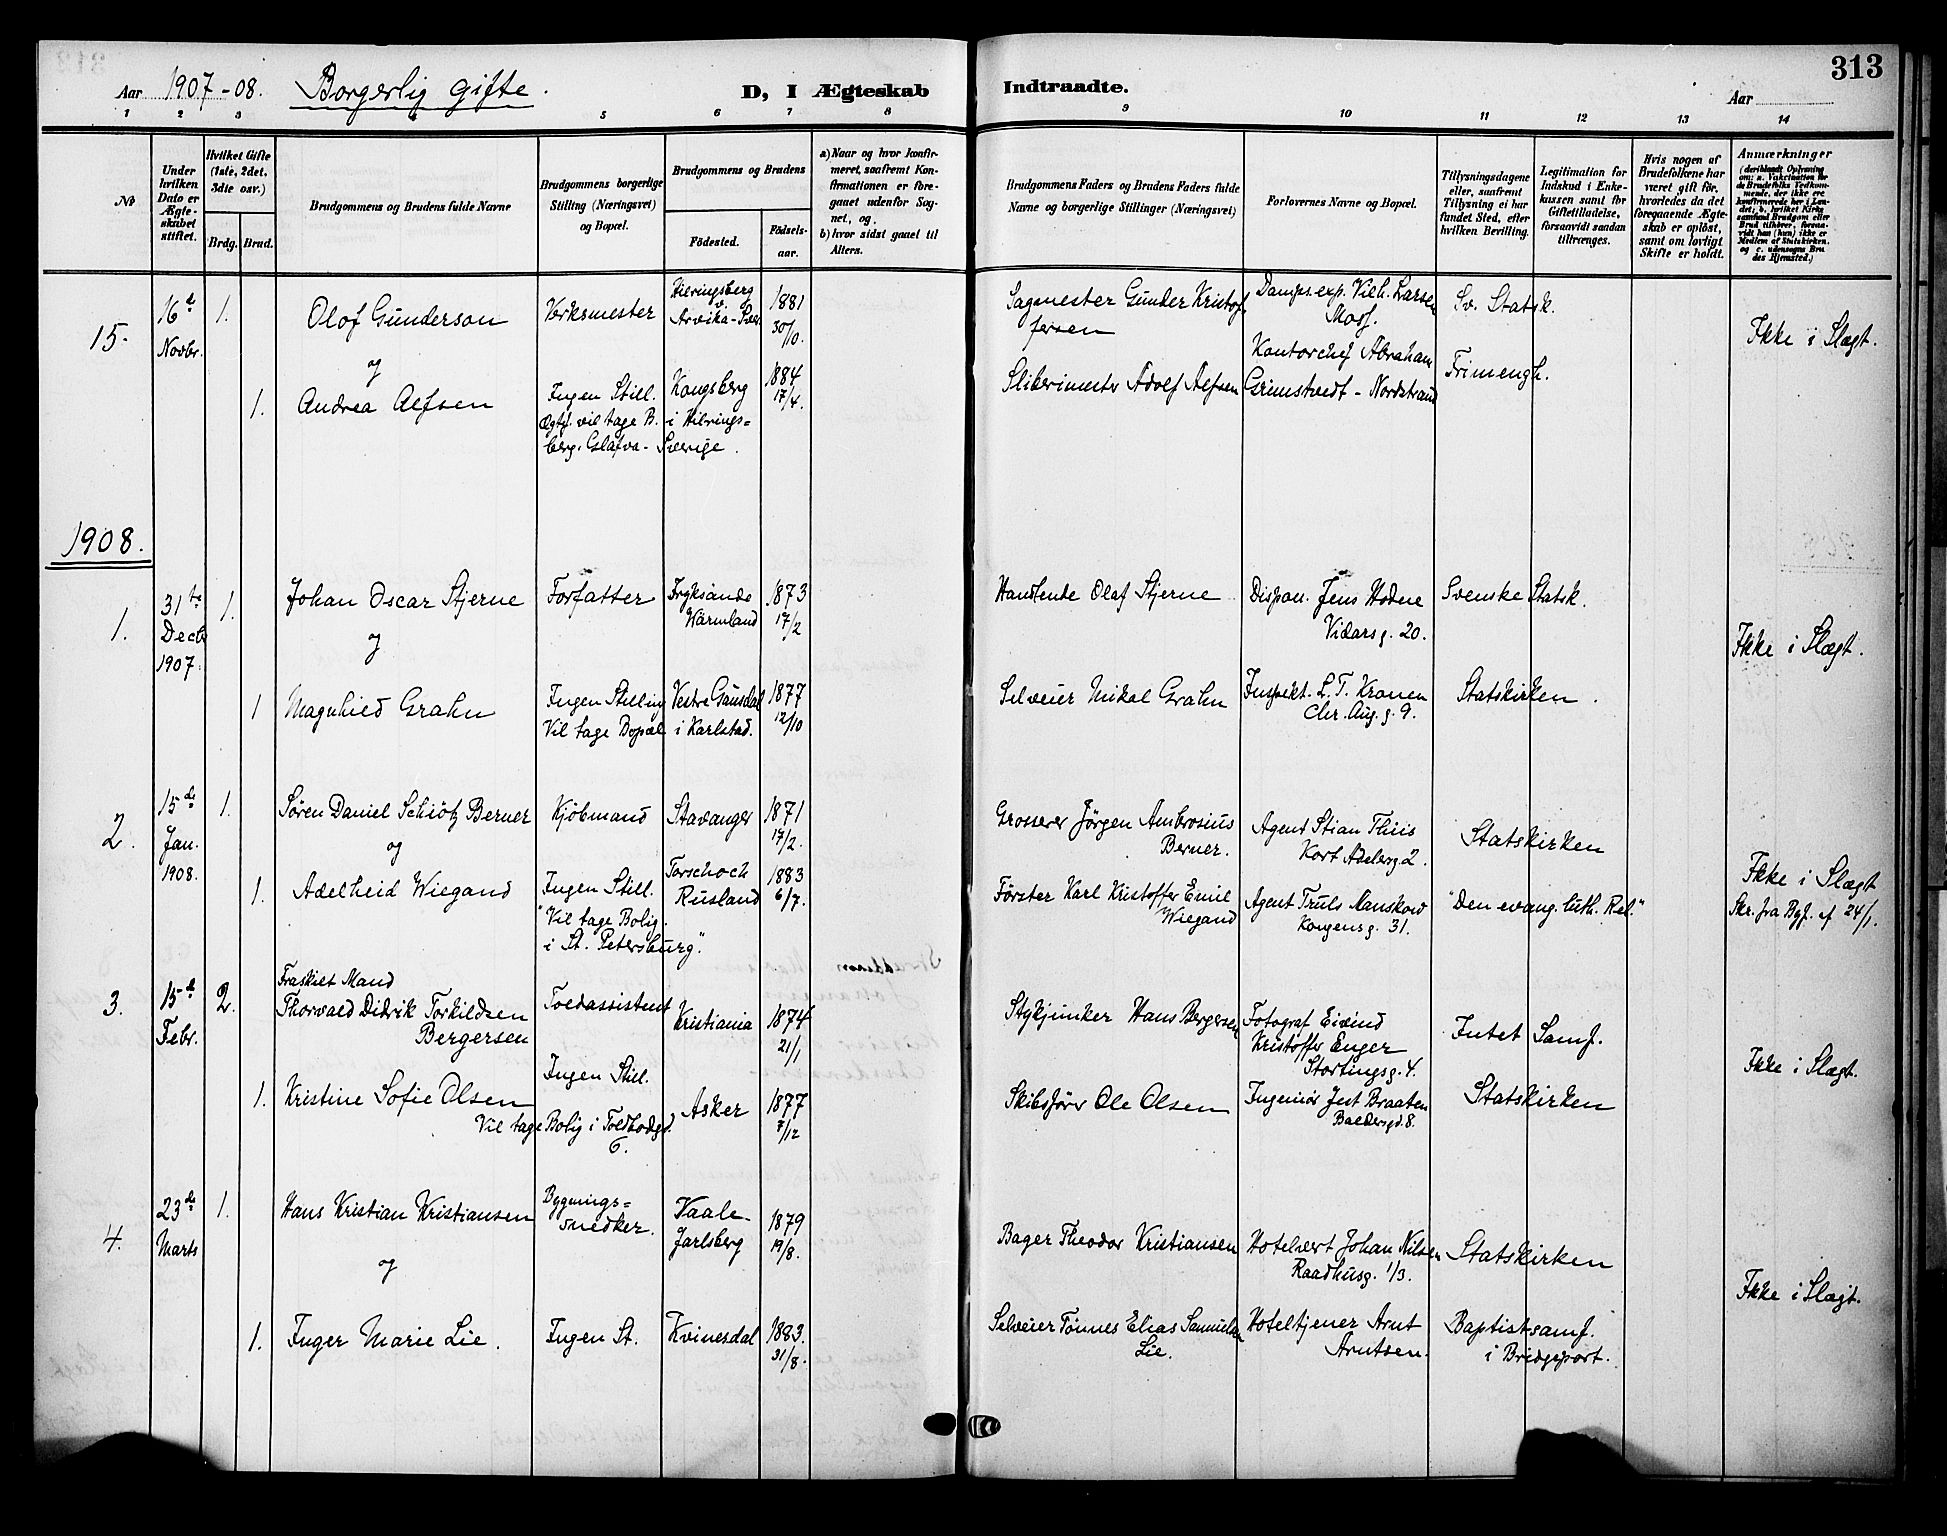 313
Aar 1907-08. Borgerlig gifte. D, I Ægteskab Indtraadte. Aar
1 2 3 4 5 6 7 8 9 10 11 12 13 14
No
Under hvilken Dato er Ægteskabet stiftet.
Hvilket Gifte (1ste, 2det, 3die osv.)
Brdg. Brud.
Brudgommens og Brudens fulde Navne
Brudgommens borgerlige Stilling (Næringsvei) og Bopæl.
Brudgommens og Brudens
Födested. Födselsaar.
a) Naar og hvor konfirmeret, saafremt Konfirmationen er foregaaet udenfor Sognet, og
b) hvor sidst gaaet til Alters.
Brudgommens Faders og Brudens Faders fulde Navne og borgerlige Stillinger (Næringsvei)
Forlovernes Navne og Bopæl.
Tillysningsdagene eller, saafremt Tillysning ei har fundet Sted, efter hvilken Bevilling.
Legitimation for Indskud i Enkekassen samt for Giftetilladelse, forsaavidt saadan tiltrænges.
Hvis nogen af Brudefolkene har været gift för, hvorledes da det foregaaende Ægteskab er oplöst, samt om lovligt Skifte er holdt.
Anmærkninger (deriblandt Oplysning om: a. Vakcination for de Brudefolks Vedkommende, der ikke ere konfirmerede her i Landet; b. hvilket Kirkesamfund Brudgom eller Brud tilhører, forsaavidt han (hun) ikke er Medlem af Statskirken. og c. udensogns Brudes Hjemsted.)
15. 16d Novbr. 1. Olof Gunderson Verksmester Hilringsberg v. Arvika - Sver. 1881 30/10. Sagmester Gunder Kristoffersen Damps.exp. Vilh. Larsen Moss. Sv. Statsk. Ikke i Slægt.
og
1. Andrea Alfsen Ingen Still. Kongsberg 1884 17/4. Sliberimester Adolf Alfsen Kontorchef Abraham Grimstvedt - Nordstrand Frimengh.
Ægtf. vil tage B. i Hilrings=
berg. Glafva - Sverige.
1908.
1. 31te Decb 1907. 1. Johan Oscar Stjerne Forfatter Fryksände Wärmland 1873 17/2 Handlende Olaf Stjerne Dispon. Jens Hodne Vidarsg. 20. Svenske Statsk. Ikke i Slægt.
og
1 Magnhild Grahn Ingen Stilling Vestre Gausdal 1877 12/10 Selveier Mikal Grahn Inspekt. L. T. Kronen Chr. Aug. g. 9. Statskirken.
Vil tage Bopæl i Karlstad.
2. 15de Jan. 1908. 1. Søren Daniel Schiötz Berner Kjöbmand Stavanger 1871 17/2. Grosserer Jörgen Ambrosius Berner. Agent Stian Thiis Kort Adelersg. 2. Statskirken
og
1. Adelheid Wiegand Ingen Still. Torschoch Rusland 1883 6/7. Förster Karl Kristoffer Emil Wiegand Agent Truls Manskow Kongensg. 31. "Den evang. luth. Rel." Ikke i Slægt Skr. fra Bgf. af 24/1.
"Vil tage Bolig.
i St. Petersburg".
3. 15d Febr. 2. Fraskilt Mand
Thorvald Didrik Torkildsen Bergersen Toldassistent Kristiania 1874 21/1 Stykjunker Hans Bergersen Fotograf Eivind Kristoffer Enger Stortingsg. 4. Intet Samf. Ikke i Slægt.
1. Kristine Sofie Olsen Ingen Still. Asker 1877 7/12 Skibsfører Ole Olsen Ingeniør Jest Braaten Baldersgd. 8. Statskirken
Vil tage Bolig i Toldbodgd. 6.
4. 23de Marts 1. Hans Kristian Kristiansen Bygnings=snedker. Vaale - Jarlsberg 1879 19/8. Bager Theodor Kristiansen Hotelvert Johan Nilsen Raadhusg. 1/3. Statskirken Ikke i Slægt.
og
1. Inger Marie Lie. Ingen St. Kvinesdal 1883. 31/8. Selveier Tönnes Elias Samuelsen Lie. Hoteltjener Arnt Arntsen. Baptistsamf. i Bridgeport.